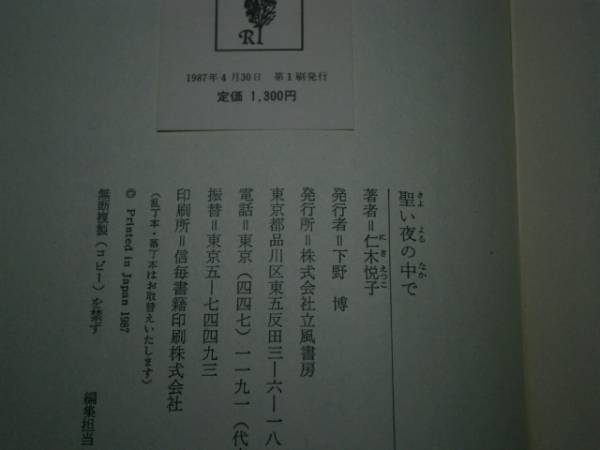 R
1987年4月30日 第1刷発行
定価 1,300円
聖い夜の中で
きよ よる なか
著者＝仁木悦子
にき えつこ
発行者＝下野 博
発行所＝株式会社立風書房
東京都品川区東五反田三―六―一八
電話＝東京（四四七）一一九一（代
振替＝東京五―七四四九三
印刷所＝信毎書籍印刷株式会社
（乱丁本・落丁本はお取替えいたします）
© Printed in Japan 1987
無断複製（コピー）を禁ず
編集担当